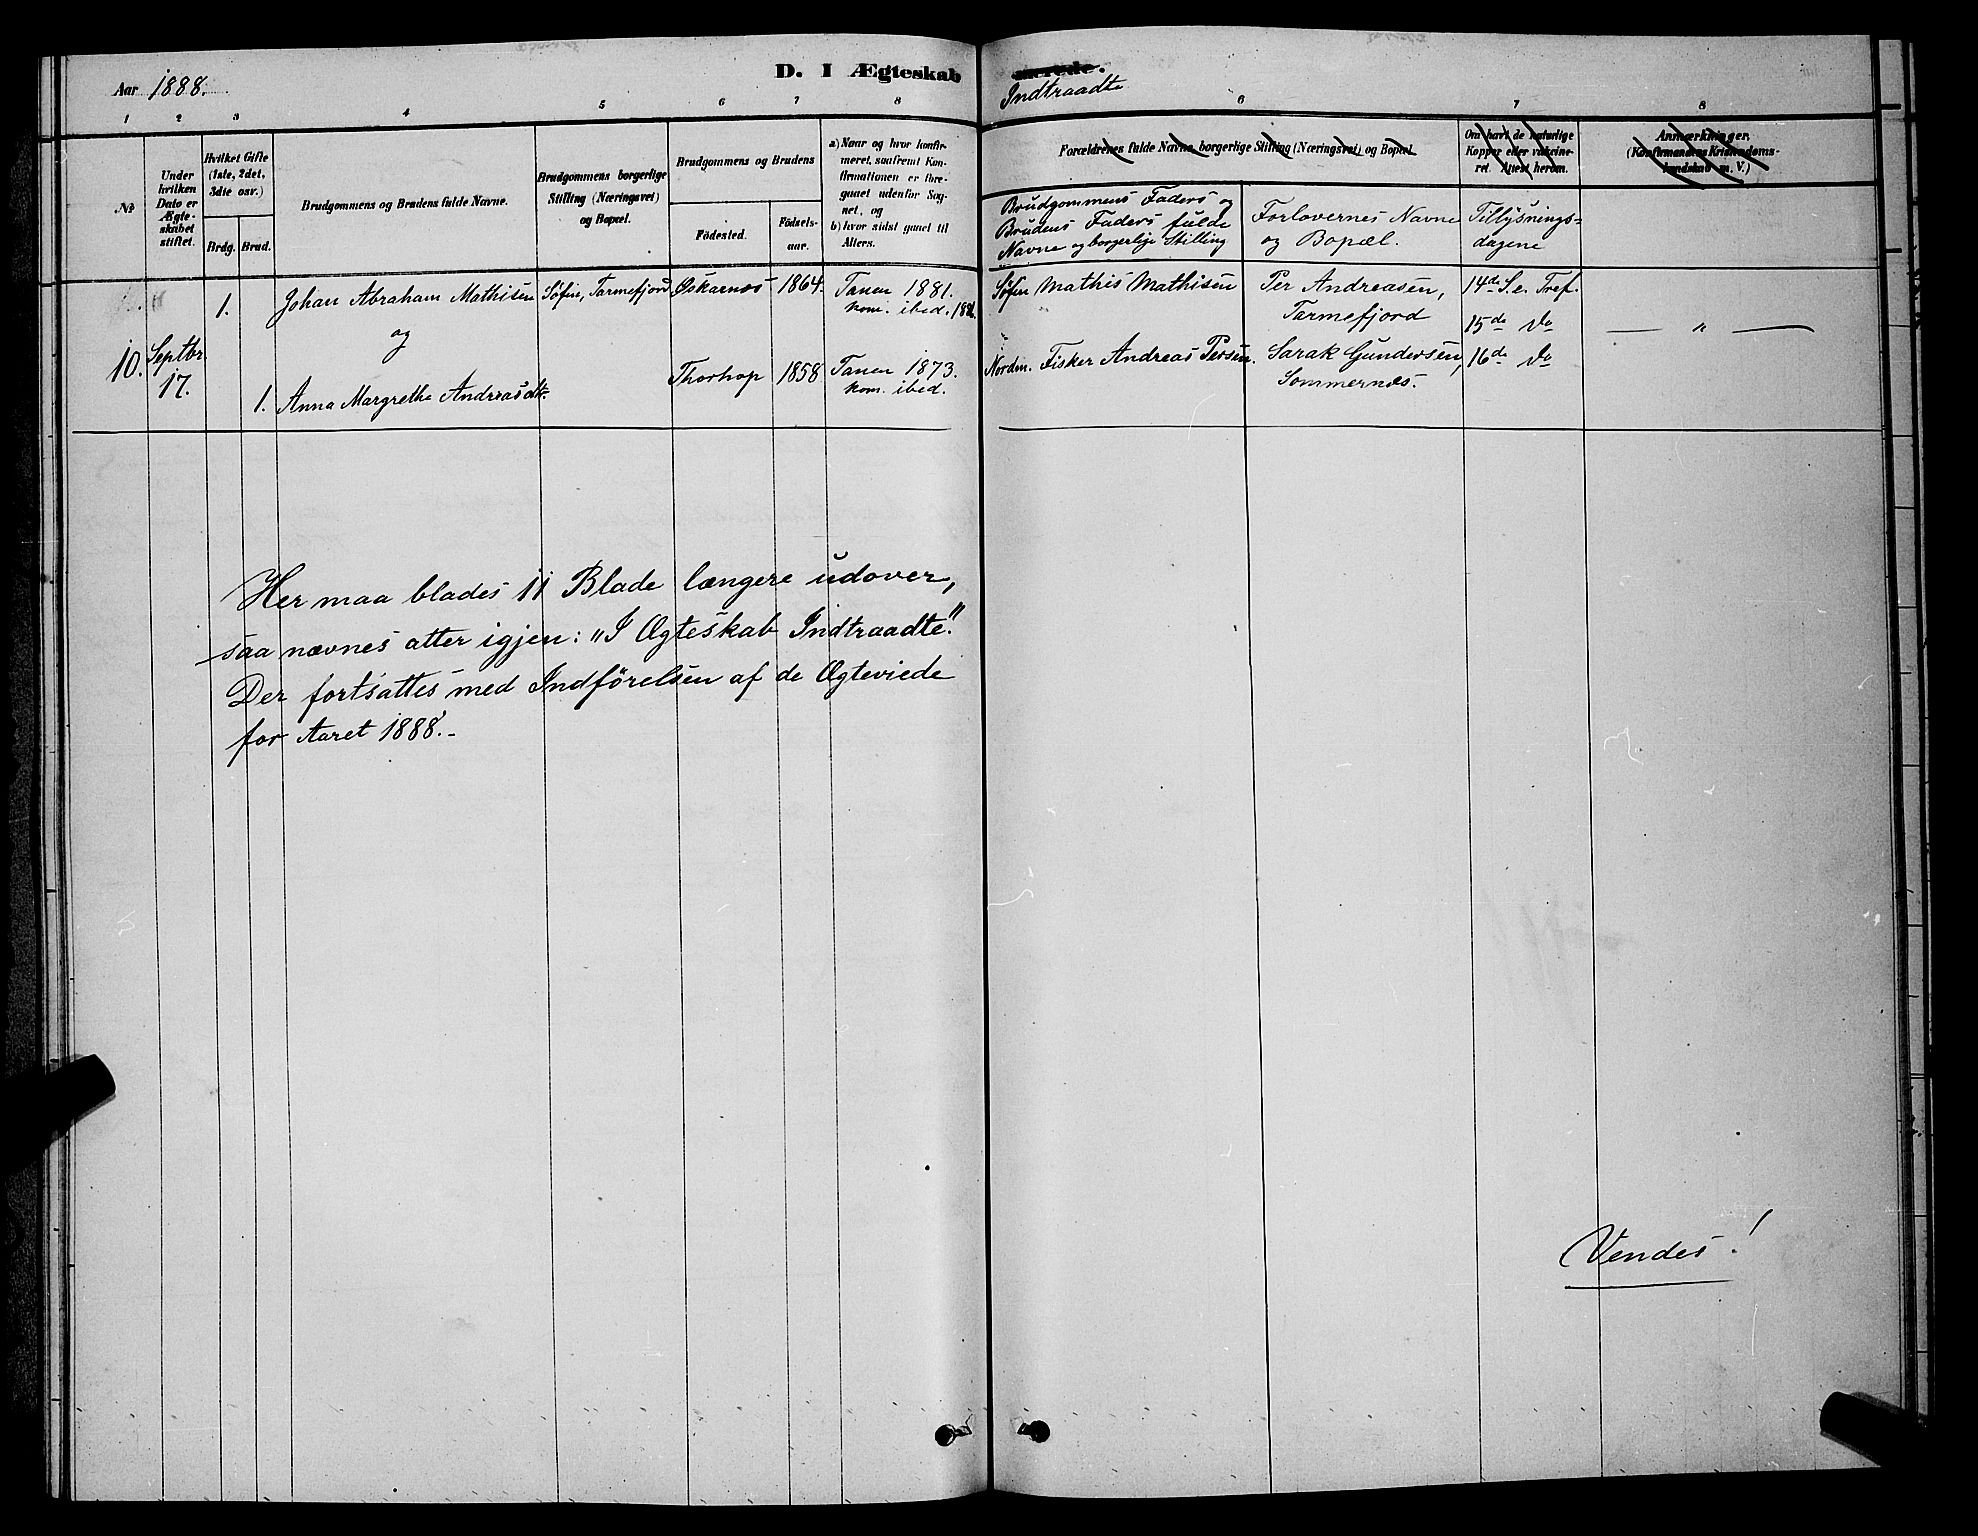 Aar 1888.
D. I Ægteskab
Indtraadte
1 2 3 4 5 6 7 8
6 7 8
№
Under hvilken Dato er Ægteskabet stiftet.
Hvilket Gifte (1ste, 2det, 3die osv.)
Brdg. Brud.
Brudgommens og Brudens fulde Navne.
Brudgommens borgerlige Stilling (Næringsvei) og Bopæl.
Brudgommens og Brudens
Fødested.
Fødselsaar.
a) Naar og hvor konfirmeret, saafremt Konfirmationen er foregaaet udenfor Sognet, og
b) hvor sidst gaaet til Alters.
Forældrenes fulde Navne, borgerlige Stilling (Næringsvei) og Bopæl.
Om havt de naturlige Kopper eller vaccineret. Attest herom.
Anmærkninger. (Konfirmandens Kristendomskundskab m. V.)
Brudgommens Faders og
Brudens Faders fulde
Navne og borgerlige Stilling
Forlovernes Navne
og Bopæl.
Tillysnings-
dagene
10.
Septbr.
17.
1.
Johan Abraham Mathisen
og
1. Anna Margrethe Andreasdtr.
Søfin, Tarmefjord
Øskarnæs 1864.
Tanen 1881.
kom. ibid.
Thorhop 1858
Tanen 1873.
kom. ibid.
Søfin Mathis Mathisen
Nordm. Fisker Andreas Persen.
Per Andreasen,
Tarmefjord
Sarak Gundersen,
Sommernæs.
14de S. e. Tref.
15de Do
16de Do
— " —
Her maa blades 11 Blade længere udover,
saa nævnes atter igjen: "I Ægteskab Indtraadte."
Der fortsattes med Indførelsen af de Ægteviede
for Aaret 1888.-
Vendes!